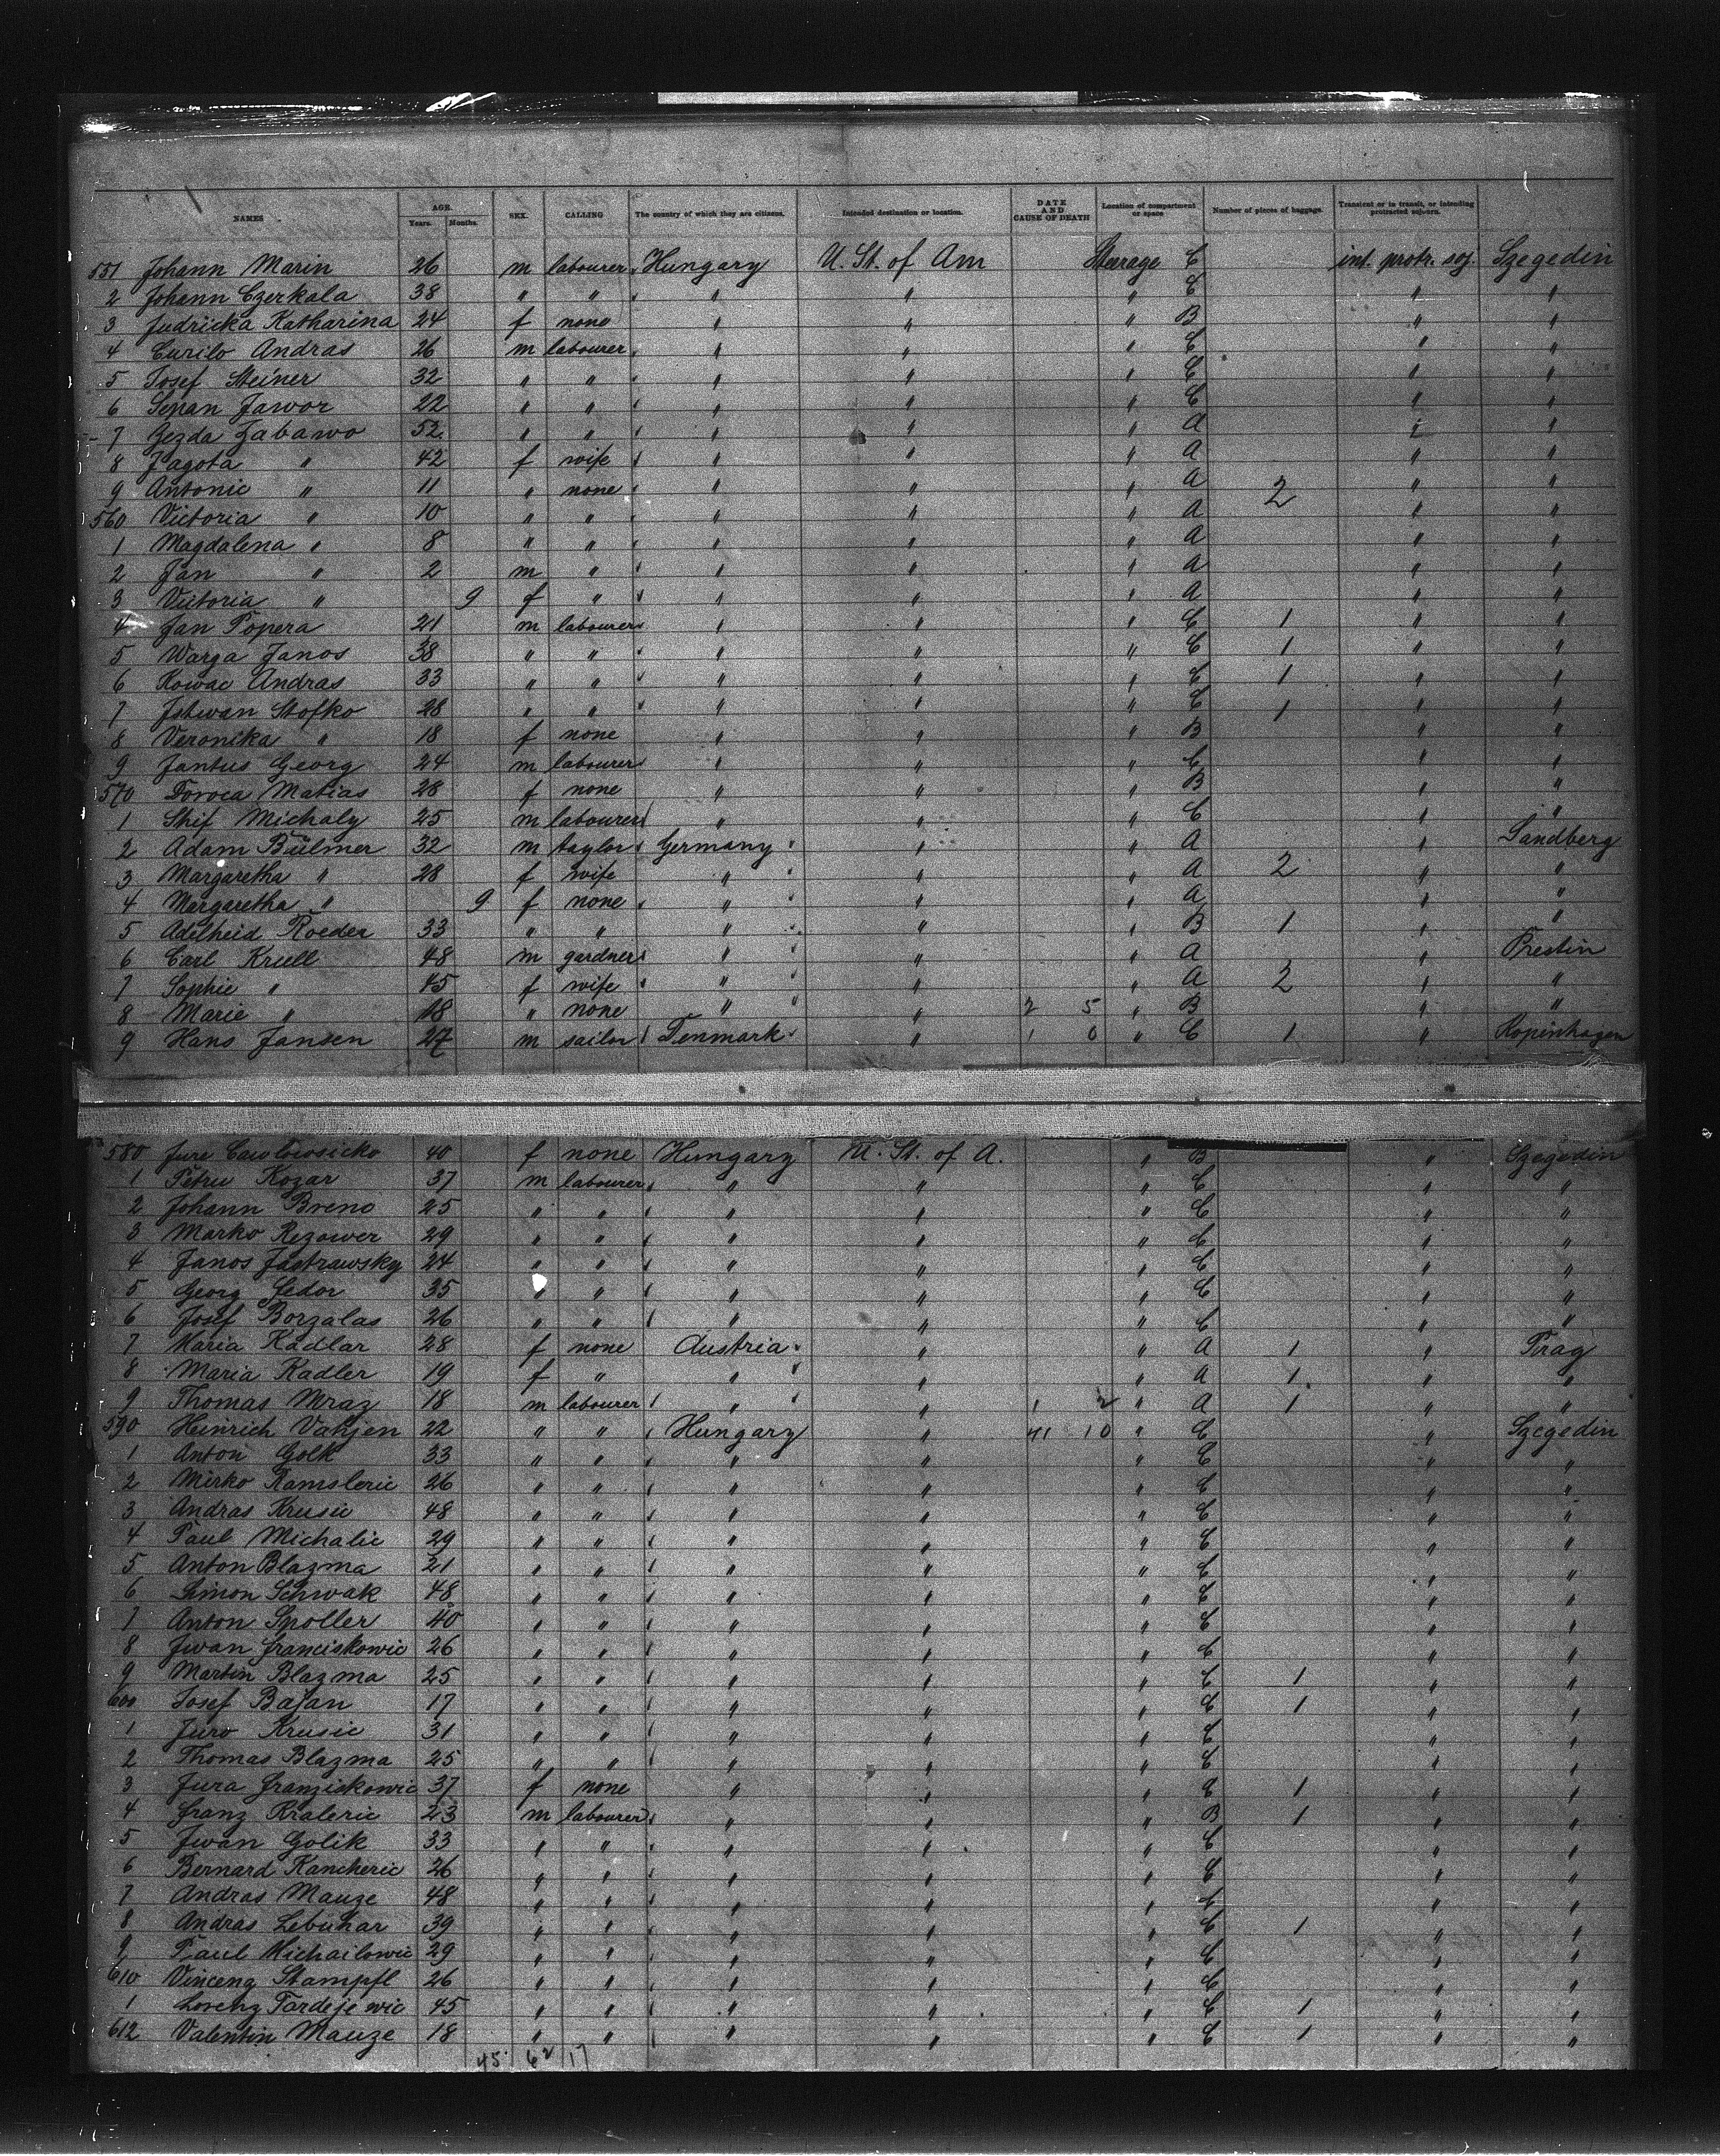 NAMES AGE. Years. Months. SEX. CALLING The country of which they are citizens. Intended destination or location. DATE AND CAUSE OF DEATH Location of compartment or space Number of pieces of baggage. Transient or in transit, or intending protracted sojourn.
551 Johann Marin 26 m labourer Hungary U. St. of Am Steerage C int. protr. soj. Szegedin
2 Johann Czerkala 38 " " " " " C " "
3 Judricka Katharina 24 f none " " " B " "
4 Curilo Andras 26 m labourer " " " C " "
5 Josef Steiner 32 " " " " " C " "
6 Sepan Jawor 22 " " " " " C " "
7 Jezda Zabawo 52 " " " " " A " "
8 Jagota " 42 f wife " " " A " "
9 Antonie " 11 " none " " " A 2 " "
560 Victoria " 10 " " " " " A " "
1 Magdalena " 8 " " " " " A " "
2 Jan " 2 m " " " " A " "
3 Victoria " 9 f " " " " A " "
4 Jan Popera 21 m labourer " " " C 1 " "
5 Warga Janos 38 " " " " " C 1 " "
6 Kowac Andras 33 " " " " " C 1 " "
7 Istwan Stofko 28 " " " " " C 1 " "
8 Veronika " 18 f none " " " B " "
9 Jantus Georg 24 m labourer " " " C " "
570 Doroca Matias 28 f none " " " B " "
1 Shif Michaly 25 m labourer " " " C " "
2 Adam Bülmer 32 m taylor Germany " " A " Sandberg
3 Margaretha " 28 f wife " " " A 2 " "
4 Margaretha " 9 f none " " " A "
5 Adelheid Roeder 33 " " " " " B 1 " "
6 Carl Krull 48 m gardner " " " A " Prestin
7 Sophie " 45 f wife " " " A 2 " "
8 Marie " 18 " none " " 2 5 " B " "
9 Hans Jansen 27 m sailor Denmark " 1 0 " C 1 " Kopenhagen
580 Jure 40 f none Hungary U. St. of A. " B " Szegedin
1 Petru Kozar 37 m labourer " " " C " "
2 Johann Breno 25 " " " " " C " "
3 Marko Rezower 29 " " " " " C " "
4 Janos Jastrawsky 24 " " " " " C " "
5 Georg Fedor 35 " " " " " C " "
6 Josef Borzalas 26 " " " " " C " "
7 Maria Kadlar 28 f none Austria " " A 1 " Prag
8 Maria Kadler 19 f " " " " A 1 " "
9 Thomas Mraz 18 m labourer " " 1 2 " A 1 " "
590 Heinrich Vakjen 22 " " Hungary " 41 10 " C " Szegedin
1 Anton Golk 33 " " " " " C " "
2 Mirko Ramsleric 26 " " " " " C " "
3 Andras Krusic 48 " " " " " C " "
4 Paul Michalic 29 " " " " " C " "
5 Anton Blazma 21 " " " " " C " "
6 Simon Schwak 48 " " " " " C " "
7 Anton Spoller 40 " " " " " C " "
8 Jwan Franciskowic 26 " " " " " C " "
9 Martin Blazma 25 " " " " " C 1 " "
600 Josef Bajan 17 " " " " " C 1 " "
1 Juro Krusic 31 " " " " " C " "
2 Thomas Blazma 25 " " " " " C " "
3 Jura Franziskowic 37 f none " " " C 1 " "
4 Franz Kraleric 23 m labourer " " " B 1 " "
5 Jwan Golik 33 " " " " " C " "
6 Bernard Kancheric 26 " " " " " C " "
7 Andras Mauze 48 " " " " " C " "
8 Andras Lebuhar 39 " " " " " C 1 " "
9 Paul Michailowic 29 " " " " " C " "
610 Vincenz Stampfl 26 " " " " " C " "
1 Lorenz Tordejewic 45 " " " " " C 1 " "
612 Valentin Mauze 18 " " " " " C 1 " "
45 62 17